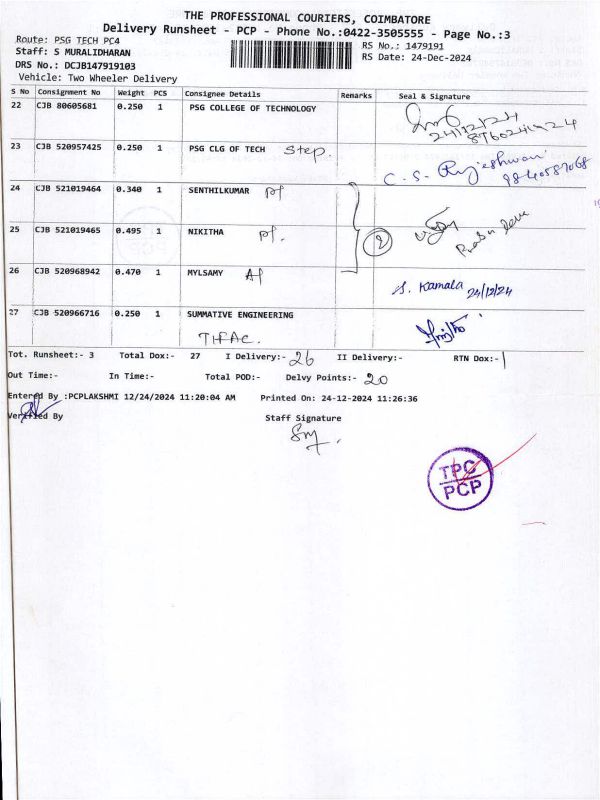 THE PROFESSIONAL COURIERS, COIMBATORE
Delivery Runsheet - PCP - Phone No.:0422-3505555 - Page No.:3
Route: PSG TECH PC4 RS No.: 1479191
Staff: S MURALIDHARAN RS Date: 24-Dec-2024
DRS No.: DCJB147919103
Vehicle: Two Wheeler Delivery
S No Consignment No Weight PCS Consignee Details Remarks Seal & Signature
22 CJB 80605681 0.250 1 PSG COLLEGE OF TECHNOLOGY
24/12/24
23 CJB 520957425 0.250 1 PSG CLG OF TECH Step.
C. S. Rajeshwari
9840587068
24 CJB 521019464 0.340 1 SENTHILKUMAR
25 CJB 521019465 0.495 1 NIKITHA
2
26 CJB 520968942 0.470 1 MYLSAMY
S. Kamala 24/12/24
27 CJB 520966716 0.250 1 SUMMATIVE ENGINEERING
TIFAC.
Tot. Runsheet:- 3 Total Dox:- 27 I Delivery:- 26 II Delivery:- RTN Dox:- 1
Out Time:- In Time:- Total POD:- Delvy Points:- 20
Entered By :PCPLAKSHMI 12/24/2024 11:20:04 AM Printed On: 24-12-2024 11:26:36
Verified By Staff Signature
TPC
PCP